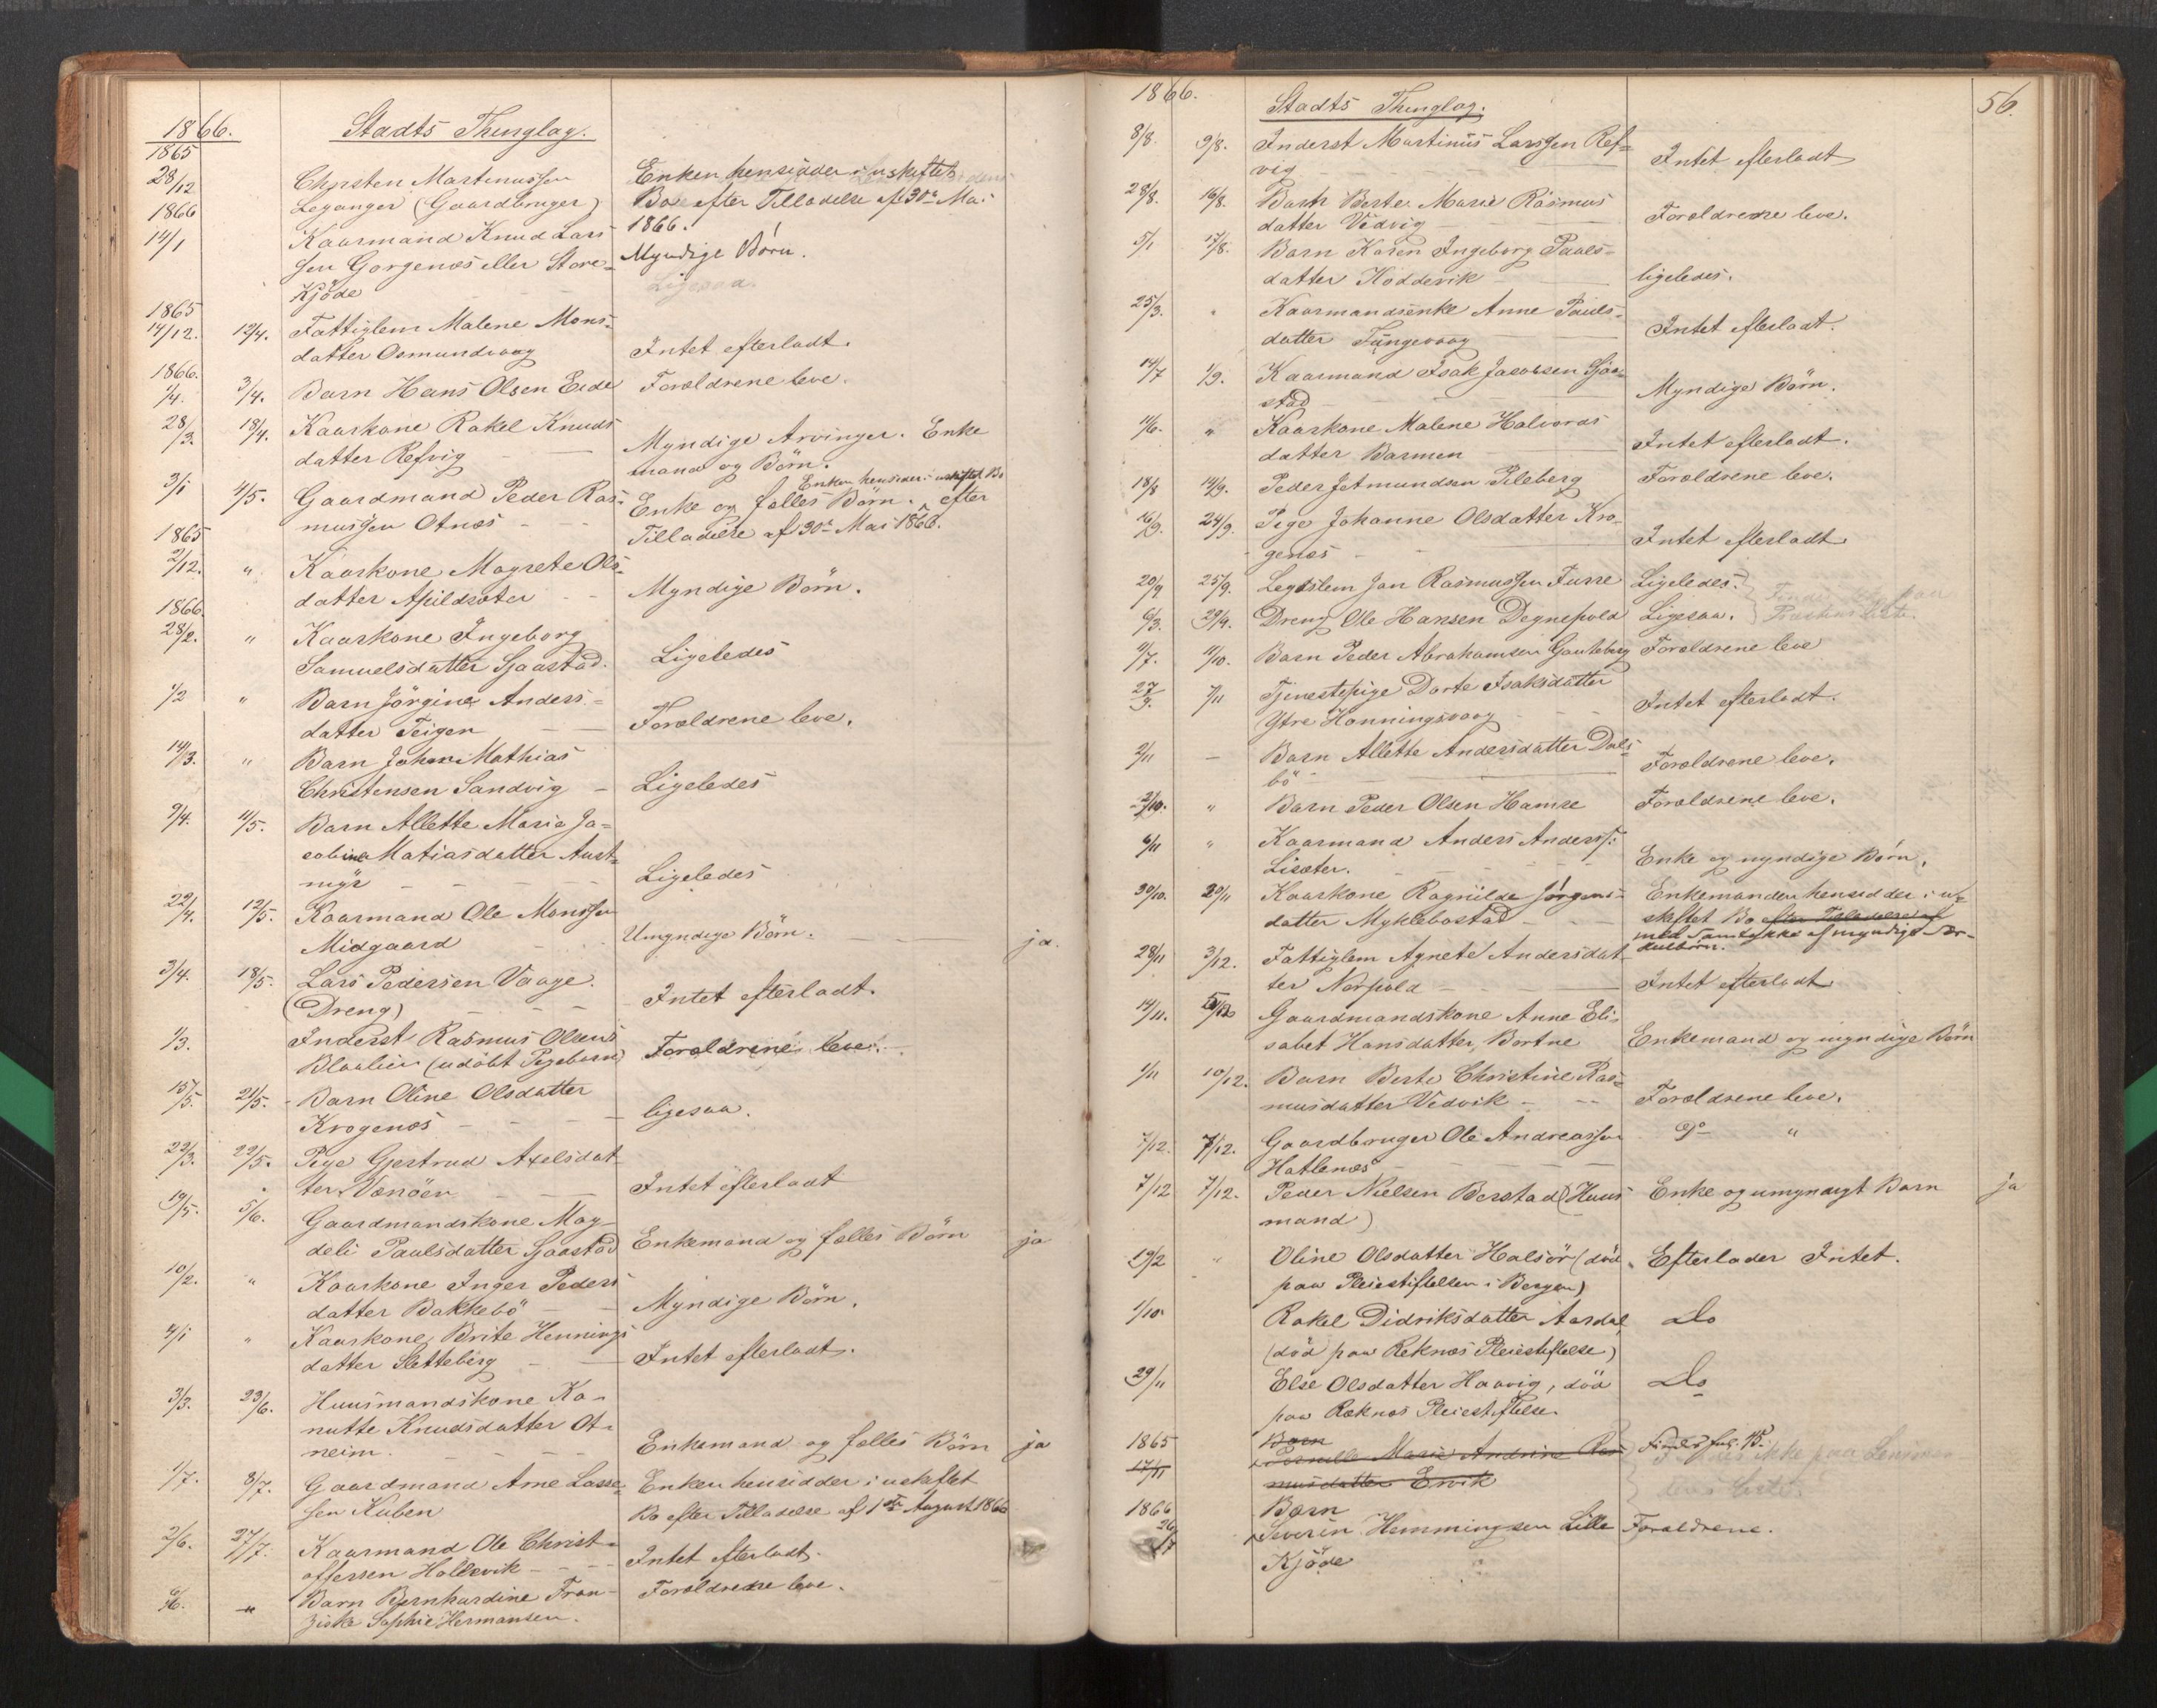 1866. Stadts Thinglag.
1865
28/12 Christen Martinussen Enken hensidder i uskiftet
Leganger (Gaardbruger) Bo efter Tilladelse af 30te Mai
1866 1866.
14/1 Kaarmand Knud Lars
sen Gorgenæs eller Store- Myndige Börn.
Kjöde Ligesaa.
1865
14/12. 12/4. Fattiglem Malene Mons-
datter Osmundvaag Intet efterladt.
1866.
1/4. 3/4. Barn Hans Olsen Eide Forældrene leve.
28/3. 18/4. Kaarkone Rakel Knuds
datter Refvig Myndige Arvinger. Enke
mand og Börn.
3/1 4/5. Gaardmand Peder Ras- Enken hensidder i uskiftet Bo
mussen Otnæs Enke og fælles Börn. efter
1865 Tilladelse af 30te Mai 1866.
2/12. " Kaarkone Magrete Ols-
datter Apildsæter Myndige Börn.
1866.
28/2. " Kaarkone Ingeborg
Samuelsdatter Sjaastad. Ligeledes
1/2 " Barn Jörgine Anders-
datter Teigen Forældrene leve.
14/3. " Barn Johan Mathias
Christensen Sandvig Ligeledes
9/4. 11/5. Barn Allette Marie Ja-
cobine Matiasdatter Aust-
myr Ligeledes
22/4. 12/5. Kaarmand Ole Monssen
Midgaard Umyndige Börn. ja.
3/4. 18/5. Lars Pedersen Vaage.
(Dreng) Intet efterladt.
1/3. Inderst Rasmus Olsens
Blaalid (udöbt Pigebarn) Forældrene leve.
15/5. 21/5. Barn Oline Olsdatter
Krogenæs ligesaa.
22/3. 22/5. Pige Gjertrud Axelsdat-
ter Vænöen Intet efterladt
19/5. 5/6. Gaardmandskone Mag-
deli Paulsdatter Sjaastad Enkemand og fælles Börn ja
10/2. " Kaarkone Inger Peders
datter Bakkebö Myndige Börn.
4/1 " Kaarkone Brite Hennings
datter Sletteberg Intet efterladt.
3/3. 23/6. Huusmandskone Ka-
nutte Knudsdatter Ot-
neim. Enkemand og fælles Börn ja
1/7. 8/7. Gaardmand Arne Lasse- Enken hensidder i uskiftet
sen Kuben Bo efter Tilladelse af 1ste August 1866
2/6. 27/7. Kaarmand Ole Christ-
offersen Hallevik Intet efterladt.
6/6. " Barn Bernhardine Fran- Forældrene leve.
ziska Sophie Hermansen.
1866. Stadts Thinglag. 56.
8/8. 9/8. Inderst Martinus Larssen Ref-
vig Intet efterladt
28/8. 16/8. Barn Berte Marie Rasmus
datter Vedvig Forældrene leve.
5/1 17/8. Barn Karen Ingeborg Paals-
datter Hoddevik ligeledes.
25/3. " Kaarmandsenke Anne Pauls-
datter Tungevaag Intet efterladt.
14/7 1/9. Kaarmand Isak Jacobsen Sjaa-
stad Myndige Börn.
14/6. " Kaarkone Malene Halvards
datter Barmen Intet efterladt.
18/8 14/9. Peder Jetmundsen Pileberg Forældrene leve.
16/9. 24/9. Pige Johanne Olsdatter Kro-
genæs Intet efterladt
20/9 25/9. Legdslem Jan Rasmussen Furre Ligeledes.
6/3. 29/9. Dreng Ole Hansen Degnepold Ligesaa.
9/7. 11/10. Barn Peder Abrahamsen Gauteberg Forældrene leve
27/9. 7/11 Tjenestepige Dorte Isaksdatter
Ytre Honningsvaag Intet efterladt.
2/11 – Barn Allette Andersdatter Dals-
bö Forældrene leve.
2/10. " Barn Peder Olsen Hamre Forældrene leve.
6/11 " Kaarmand Anders Anderss:
Lisæter. Enke og myndige Börn.
30/10. 20/11 Kaarkone Ragnilde Jörgens- Enkemanden hensidder i u-
datter Myklebostad skiftet Bo efter Tilladelse af
med Samtykke af myndige Sær-
kulbörn.
28/11 3/12. Fattiglem Agnete Andersdat-
ter Norpold Intet efterladt
14/11. Gaardmandskone Anne Eli-
sabet Hansdatter, Bortne Enkemand og myndige Börn
1/11 10/12. Barn Berte Christine Ras-
musdatter Vedvik Forældrene leve.
7/12. 7/12. Gaardbruger Ole Andreassen Do "
Hatlenæs
7/12 7/12. Peder Nielsen Berstad (Huus Enke og umyndigt Barn ja
mand)
19/2 " Oline Olsdatter Halsör (död Efterlader Intet.
paa Pleiestiftelsen i Bergen)
1/10 Rakel Didriksdatter Aardal Do
(död paa Reknæs Pleiestiftelse)
29/11 Else Olsdatter Haavig, död Do
paa Reknæs Pleiestiftelse.
1865 Barn
17/11 Pernelle Marie Andrine Ras
musdatter Ervik
1866 Barn
26/7 Severin Hemmingsen Lille Forældrene.
Kjöde